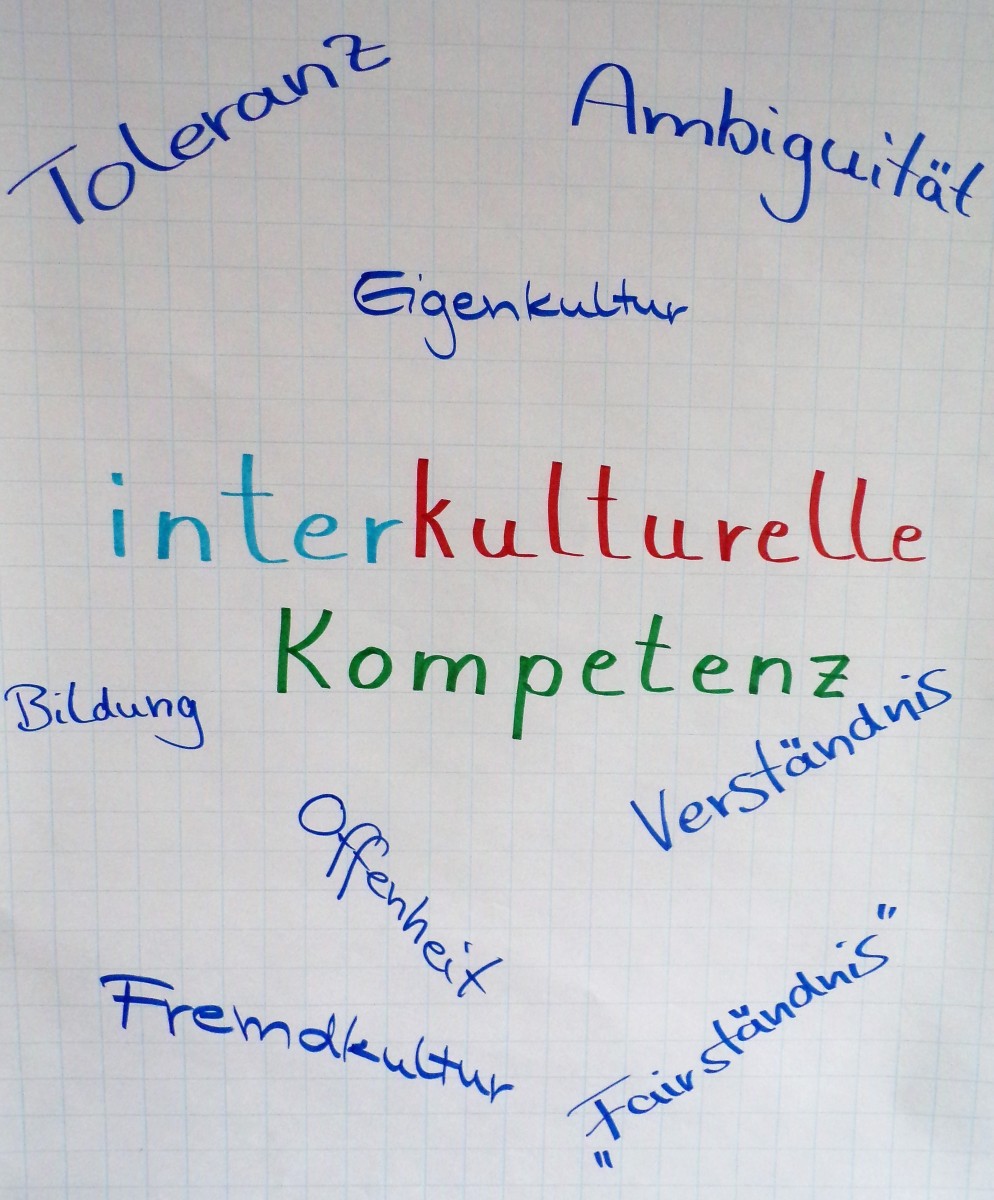 Toleranz
Ambiguität
Eigenkultur
interkulturelle
Kompetenz
Bildung
Verständnis
Offenheit
Fremdkultur
"Fairständnis"